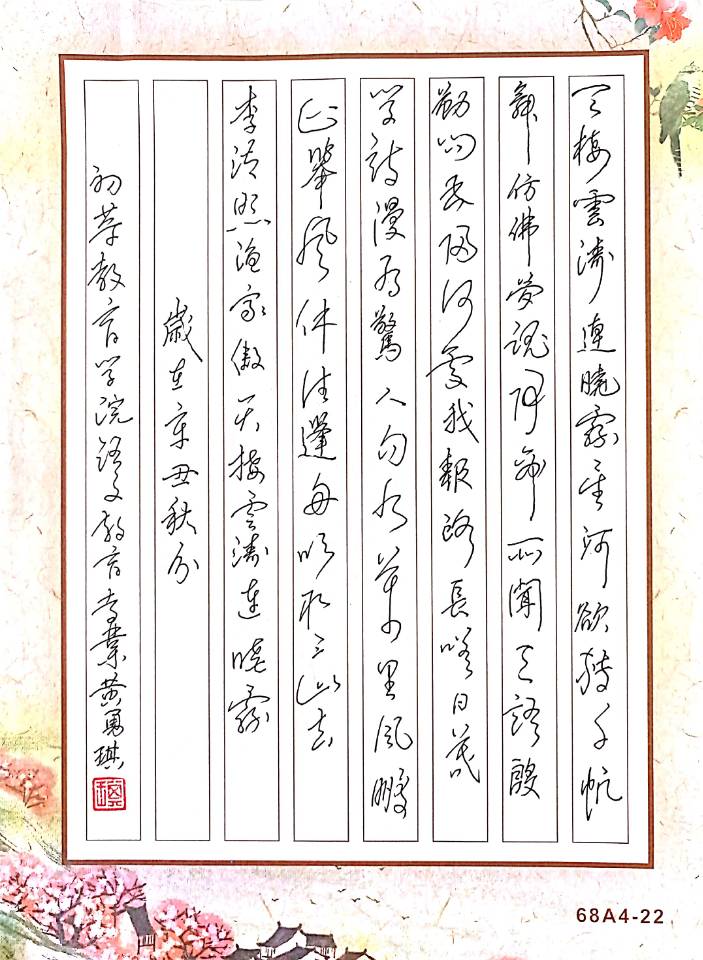 天接雲濤連曉霧星河欲轉千帆
舞仿佛夢魂歸帝所聞天語殷
勤問我歸何處我報路長嗟日暮
學詩漫有驚人句九萬里風鵬
正舉風休住蓬舟吹取三山去
李清照漁家傲天接雲濤連曉霧
歲在辛丑秋分
初等教育学院語文教育专業黄勇琪
68A4-22